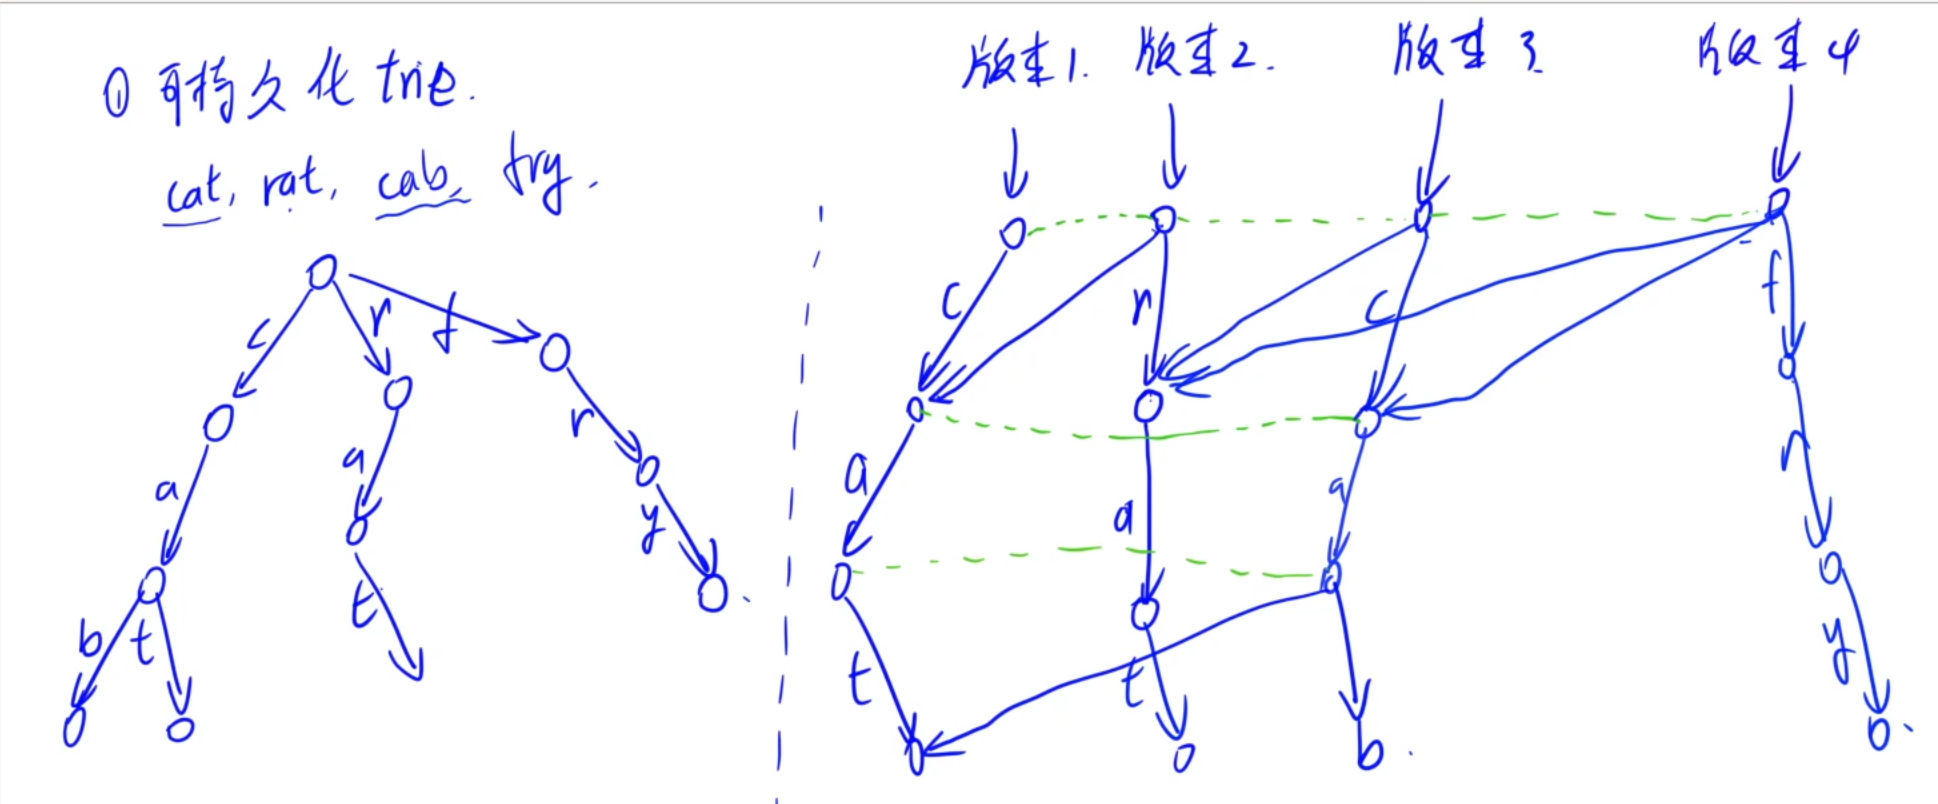 ① 可持久化 trie.
cat, rat, cab, fry.
c r f
a a r
b t t y
版本1. 版本2. 版本3. 版本4
c r c f
a a a r
t t b y